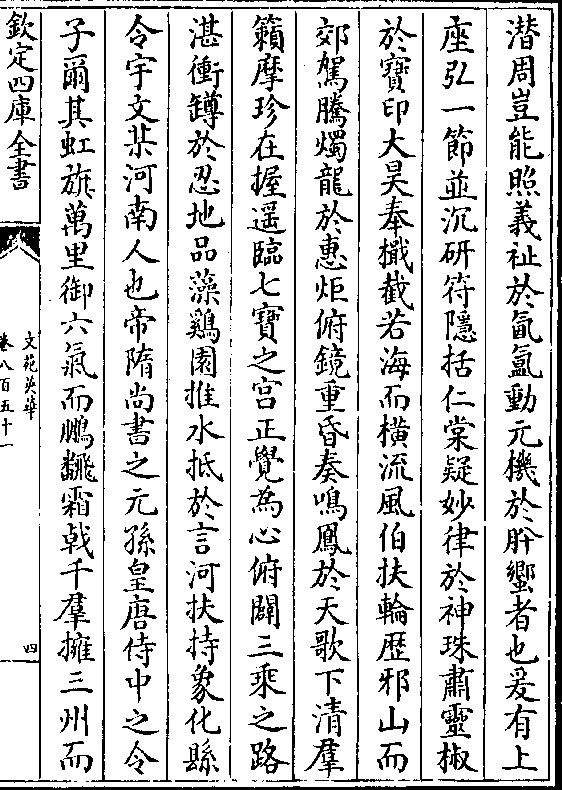 潜周豈能照義祉於氤氲動元機於肸蠁者也爰有上
座弘一節並沉研符隱括仁棠疑妙律於神珠肅靈椒
於寶印大昊奉攕截若海而横流風伯扶輪歴邪山而
郊駕騰燭龍於惠炬俯鏡重昏奏鳴鳳於天歌下清羣
籟摩珍在握遥臨七寶之宫正覺為心俯闢三乘之路
湛衝罇於忍地品藻鷄園推水抵於言河扶持象化縣
令宇文某河南人也帝隋尚書之元孫皇唐侍中之令
子爾其虹旗萬里御六氣而鵬飜霜㦸千羣擁三州而
欽定四庫全書
文苑英華
卷八百五十一
四